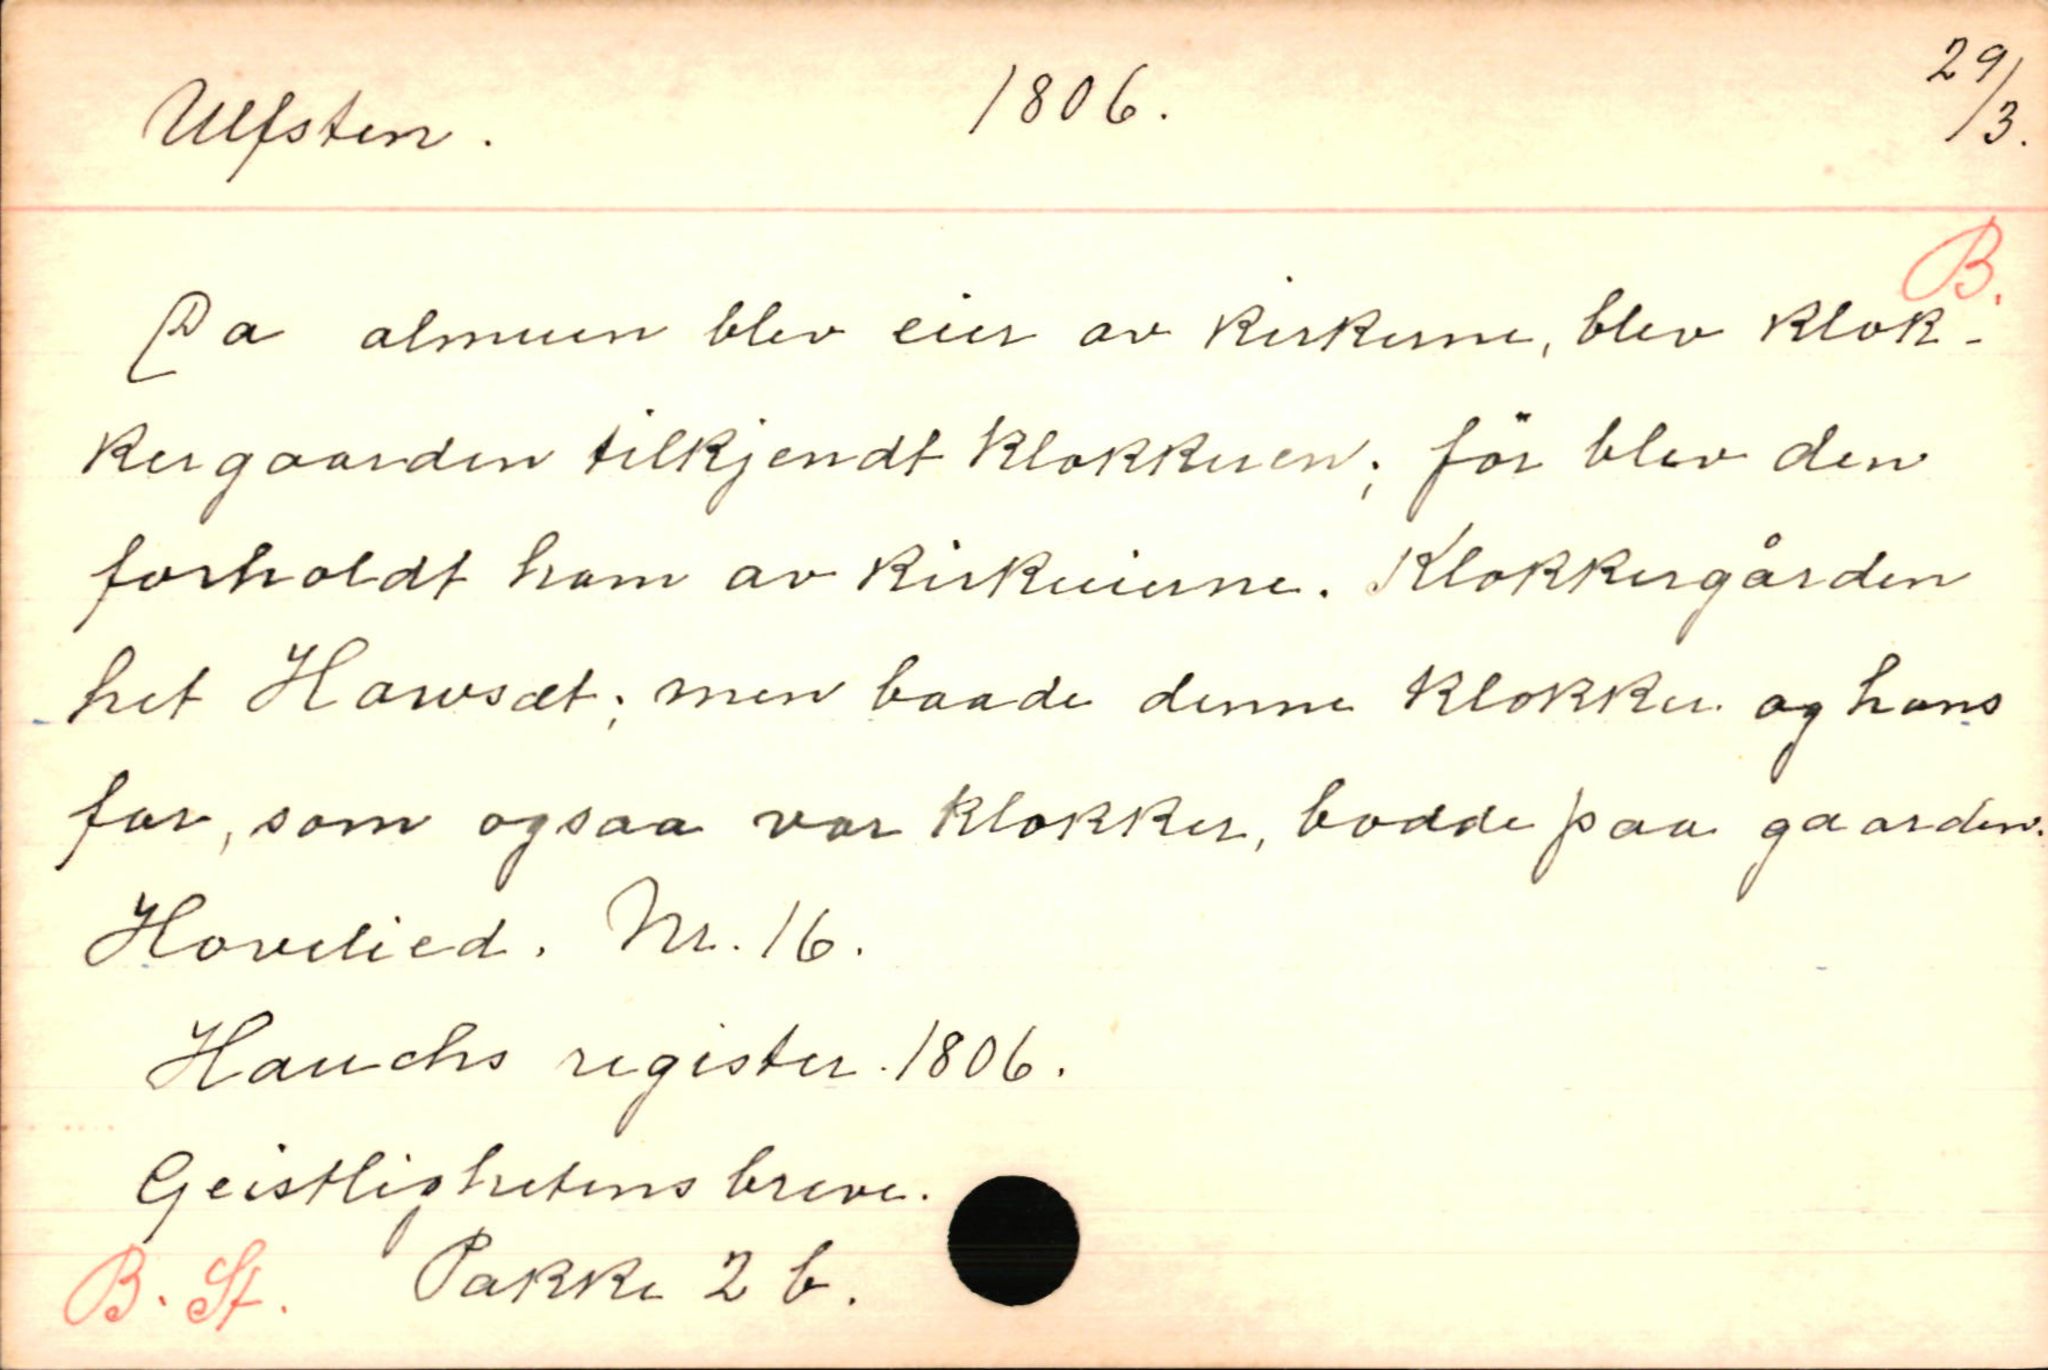 Ulfsten. 1806. 29/3.
B.
Da almuen blev eier av kirkerne, blev klok-
kergaarden tilkjendt klokkeren; för blev den
forholdt ham av kirkeeierne. Klokkergården
het Hawsæt; men baade denne klokker og hans
far, som ogsaa var klokker, bodde paa gaarden.
Hovelied. Nr. 16.
Hauchs register. 1806.
Geistlighetens breve.
B. St. Pakke 2 b.